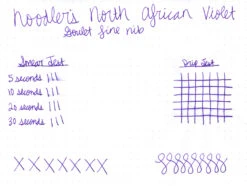 Noodler's North African Violet
Goulet fine nib
Smear Test
Drip Test
5 seconds
10 seconds
20 seconds
30 seconds
XXXXXXX